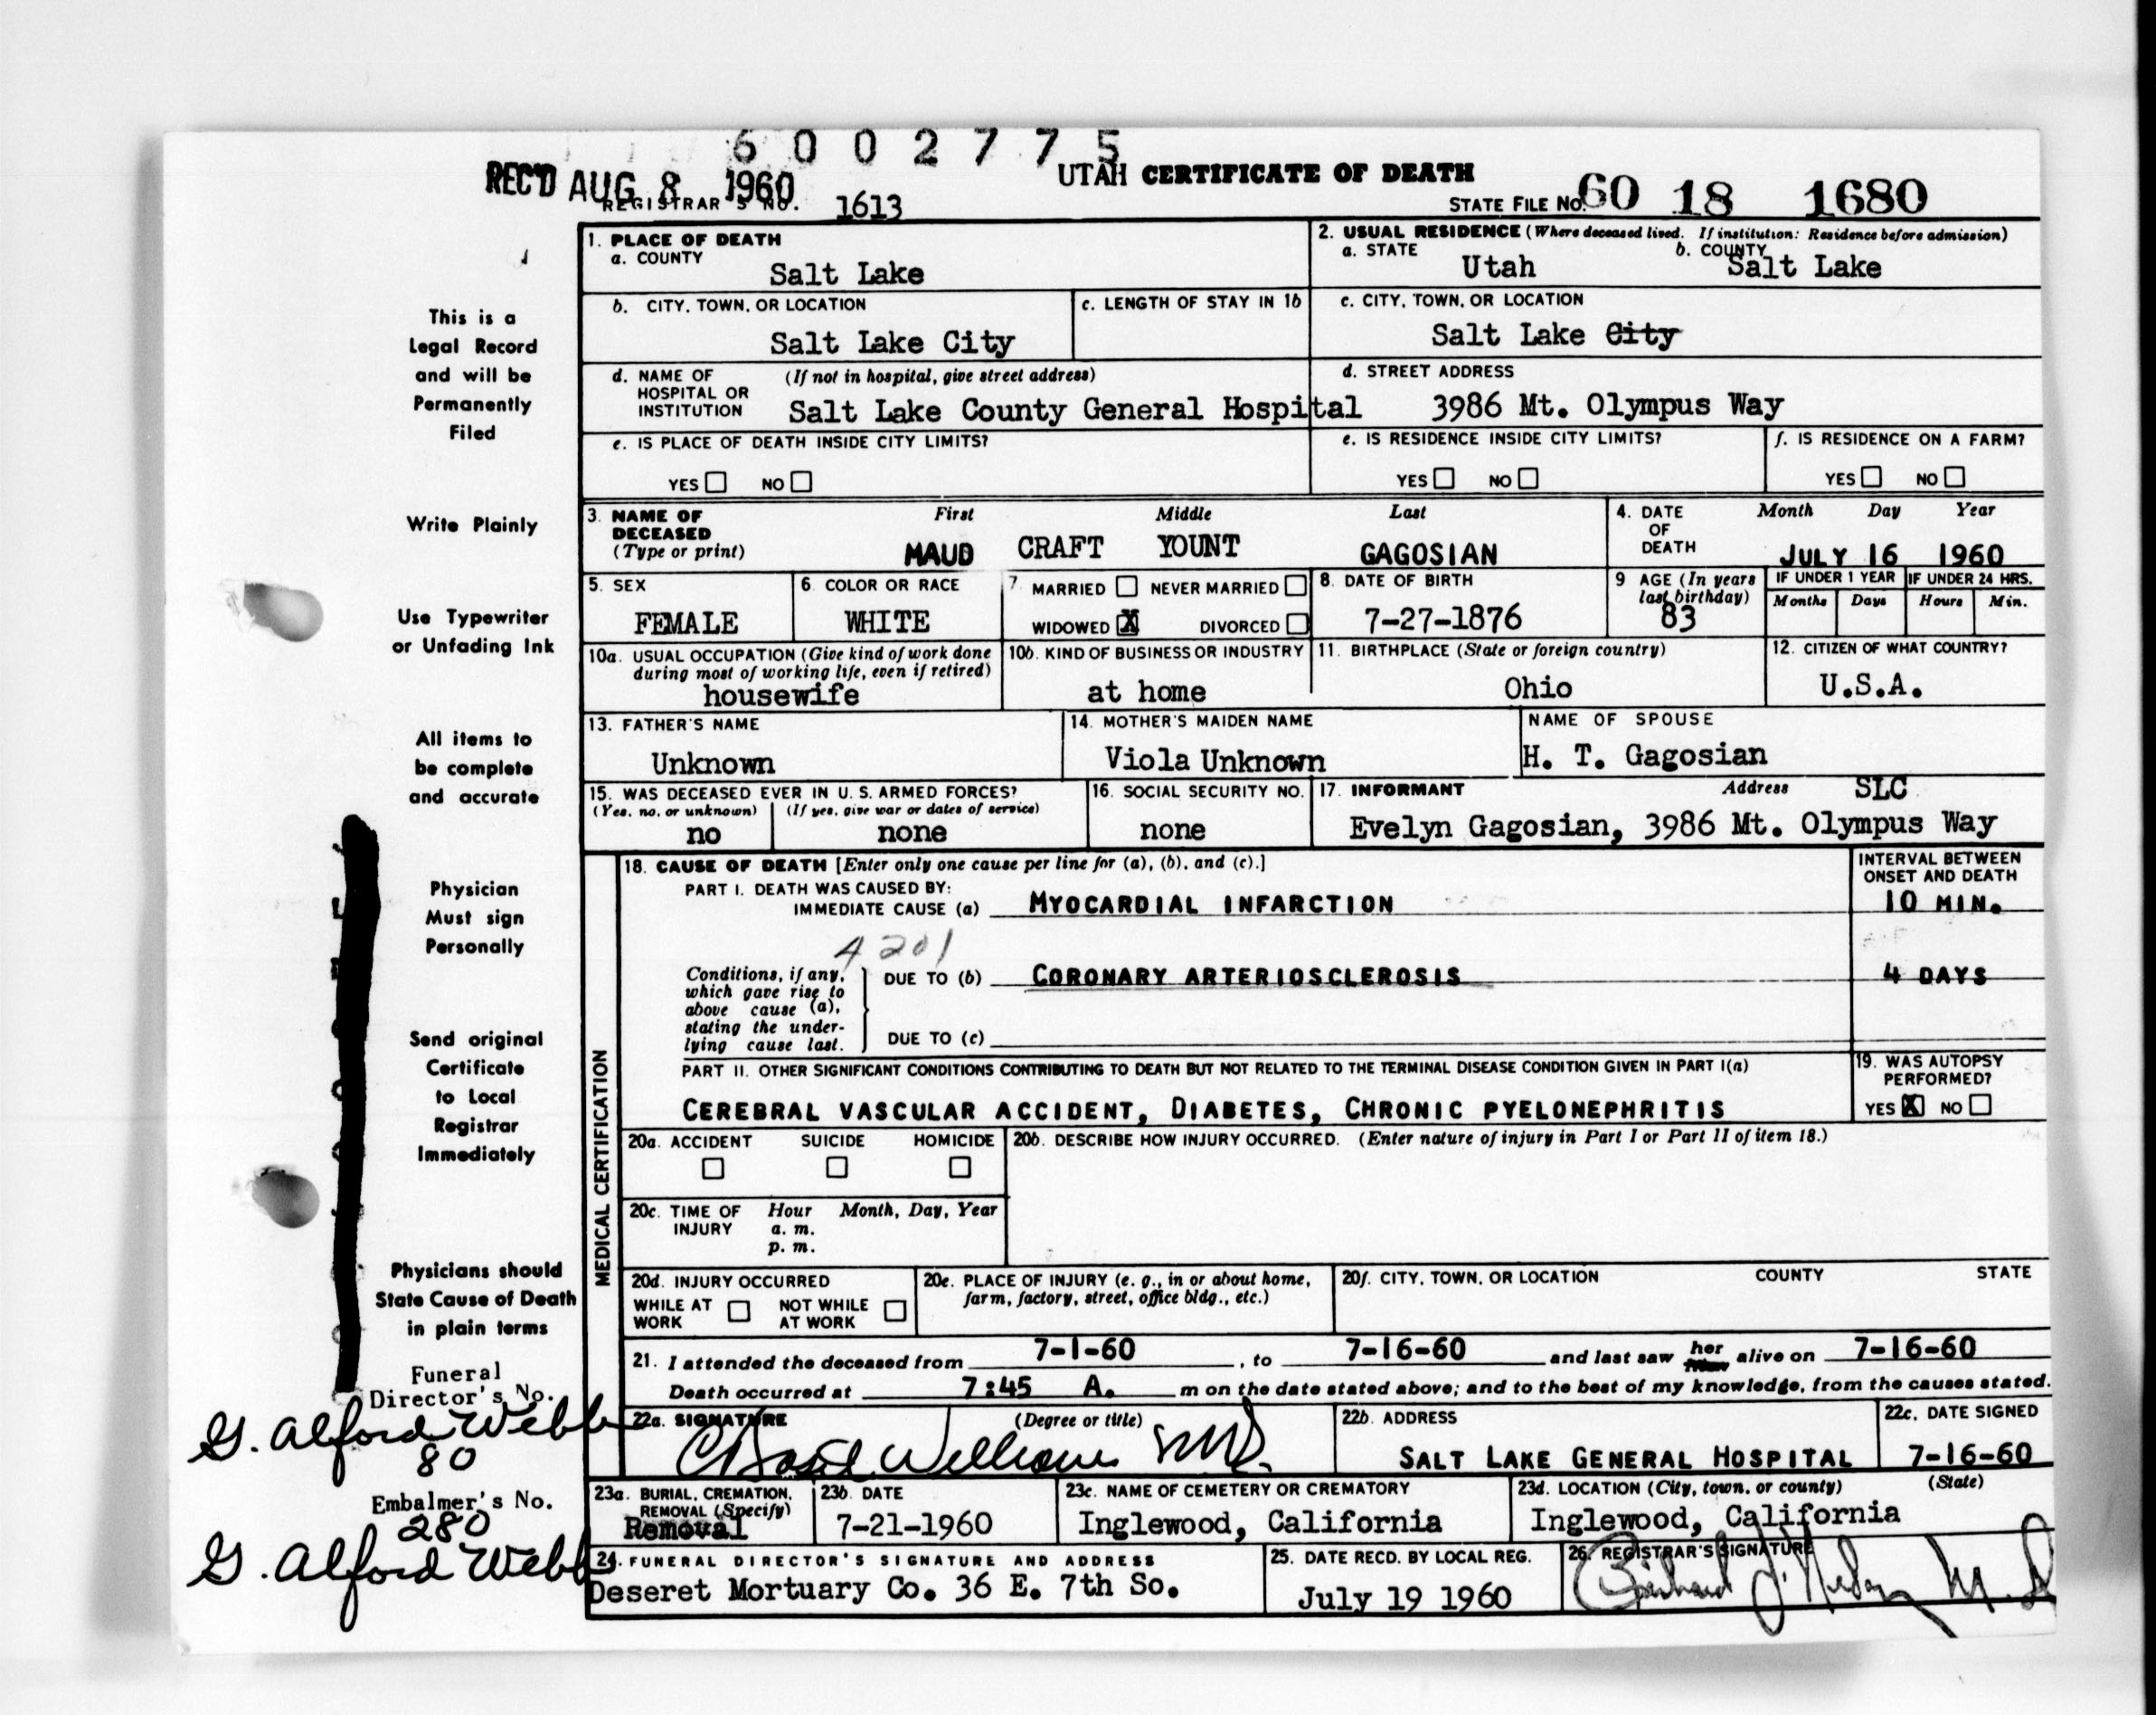 6002775
REC'D AUG 8 1960
UTAH CERTIFICATE OF DEATH
REGISTRAR'S NO. 1613
STATE FILE NO. 60 18 1680
1. PLACE OF DEATH
a. COUNTY
Salt Lake
2. USUAL RESIDENCE (Where deceased lived. If institution: Residence before admission)
a. STATE
Utah
b. COUNTY
Salt Lake
b. CITY, TOWN, OR LOCATION
Salt Lake City
c. LENGTH OF STAY IN 1b
c. CITY, TOWN, OR LOCATION
Salt Lake City
d. NAME OF HOSPITAL OR INSTITUTION
(If not in hospital, give street address)
Salt Lake County General Hospital
d. STREET ADDRESS
3986 Mt. Olympus Way
e. IS PLACE OF DEATH INSIDE CITY LIMITS?
YES NO
e. IS RESIDENCE INSIDE CITY LIMITS?
YES NO
f. IS RESIDENCE ON A FARM?
YES NO
3. NAME OF DECEASED
(Type or print)
First Middle Last
MAUD CRAFT YOUNT GAGOSIAN
4. DATE OF DEATH
Month Day Year
JULY 16 1960
5. SEX
FEMALE
6. COLOR OR RACE
WHITE
7. MARRIED NEVER MARRIED
WIDOWED X DIVORCED
8. DATE OF BIRTH
7-27-1876
9 AGE (In years last birthday)
83
IF UNDER 1 YEAR
Months Days
IF UNDER 24 HRS.
Hours Min.
10a. USUAL OCCUPATION (Give kind of work done during most of working life, even if retired)
housewife
10b. KIND OF BUSINESS OR INDUSTRY
at home
11. BIRTHPLACE (State or foreign country)
Ohio
12. CITIZEN OF WHAT COUNTRY?
U.S.A.
13. FATHER'S NAME
Unknown
14. MOTHER'S MAIDEN NAME
Viola Unknown
NAME OF SPOUSE
H. T. Gagosian
15. WAS DECEASED EVER IN U. S. ARMED FORCES?
(Yes, no, or unknown) (If yes, give war or dates of service)
no none
16. SOCIAL SECURITY NO.
none
17. INFORMANT Address
SLC
Evelyn Gagosian, 3986 Mt. Olympus Way
18. CAUSE OF DEATH [Enter only one cause per line for (a), (b), and (c).]
PART I. DEATH WAS CAUSED BY:
IMMEDIATE CAUSE (a) MYOCARDIAL INFARCTION
INTERVAL BETWEEN ONSET AND DEATH
10 MIN.
4201
Conditions, if any, which gave rise to above cause (a), stating the underlying cause last.
DUE TO (b) CORONARY ARTERIOSCLEROSIS
4 DAYS
DUE TO (c)
PART II. OTHER SIGNIFICANT CONDITIONS CONTRIBUTING TO DEATH BUT NOT RELATED TO THE TERMINAL DISEASE CONDITION GIVEN IN PART I(a)
CEREBRAL VASCULAR ACCIDENT, DIABETES, CHRONIC PYELONEPHRITIS
19. WAS AUTOPSY PERFORMED?
YES X NO
MEDICAL CERTIFICATION
20a. ACCIDENT SUICIDE HOMICIDE
20b. DESCRIBE HOW INJURY OCCURRED. (Enter nature of injury in Part I or Part II of item 18.)
20c. TIME OF INJURY
Hour Month, Day, Year
a. m.
p. m.
20d. INJURY OCCURRED
WHILE AT WORK NOT WHILE AT WORK
20e. PLACE OF INJURY (e. g., in or about home, farm, factory, street, office bldg., etc.)
20f. CITY, TOWN, OR LOCATION COUNTY STATE
21. I attended the deceased from 7-1-60, to 7-16-60 and last saw her alive on 7-16-60
Death occurred at 7:45 A. m on the date stated above; and to the best of my knowledge, from the causes stated.
22a. SIGNATURE (Degree or title)
Williams M.D.
22b. ADDRESS
SALT LAKE GENERAL HOSPITAL
22c. DATE SIGNED
7-16-60
23a. BURIAL, CREMATION, REMOVAL (Specify)
Removal
23b. DATE
7-21-1960
23c. NAME OF CEMETERY OR CREMATORY
Inglewood, California
23d. LOCATION (City, town, or county) (State)
Inglewood, California
24. FUNERAL DIRECTOR'S SIGNATURE AND ADDRESS
Deseret Mortuary Co. 36 E. 7th So.
25. DATE RECD. BY LOCAL REG.
July 19 1960
26. REGISTRAR'S SIGNATURE
This is a
Legal Record
and will be
Permanently
Filed
Write Plainly
Use Typewriter
or Unfading Ink
All items to
be complete
and accurate
Physician
Must sign
Personally
Send original
Certificate
to Local
Registrar
Immediately
Physicians should
State Cause of Death
in plain terms
Funeral
Director's No.
G. Alford Webb
80
Embalmer's No.
280
G. Alford Webb